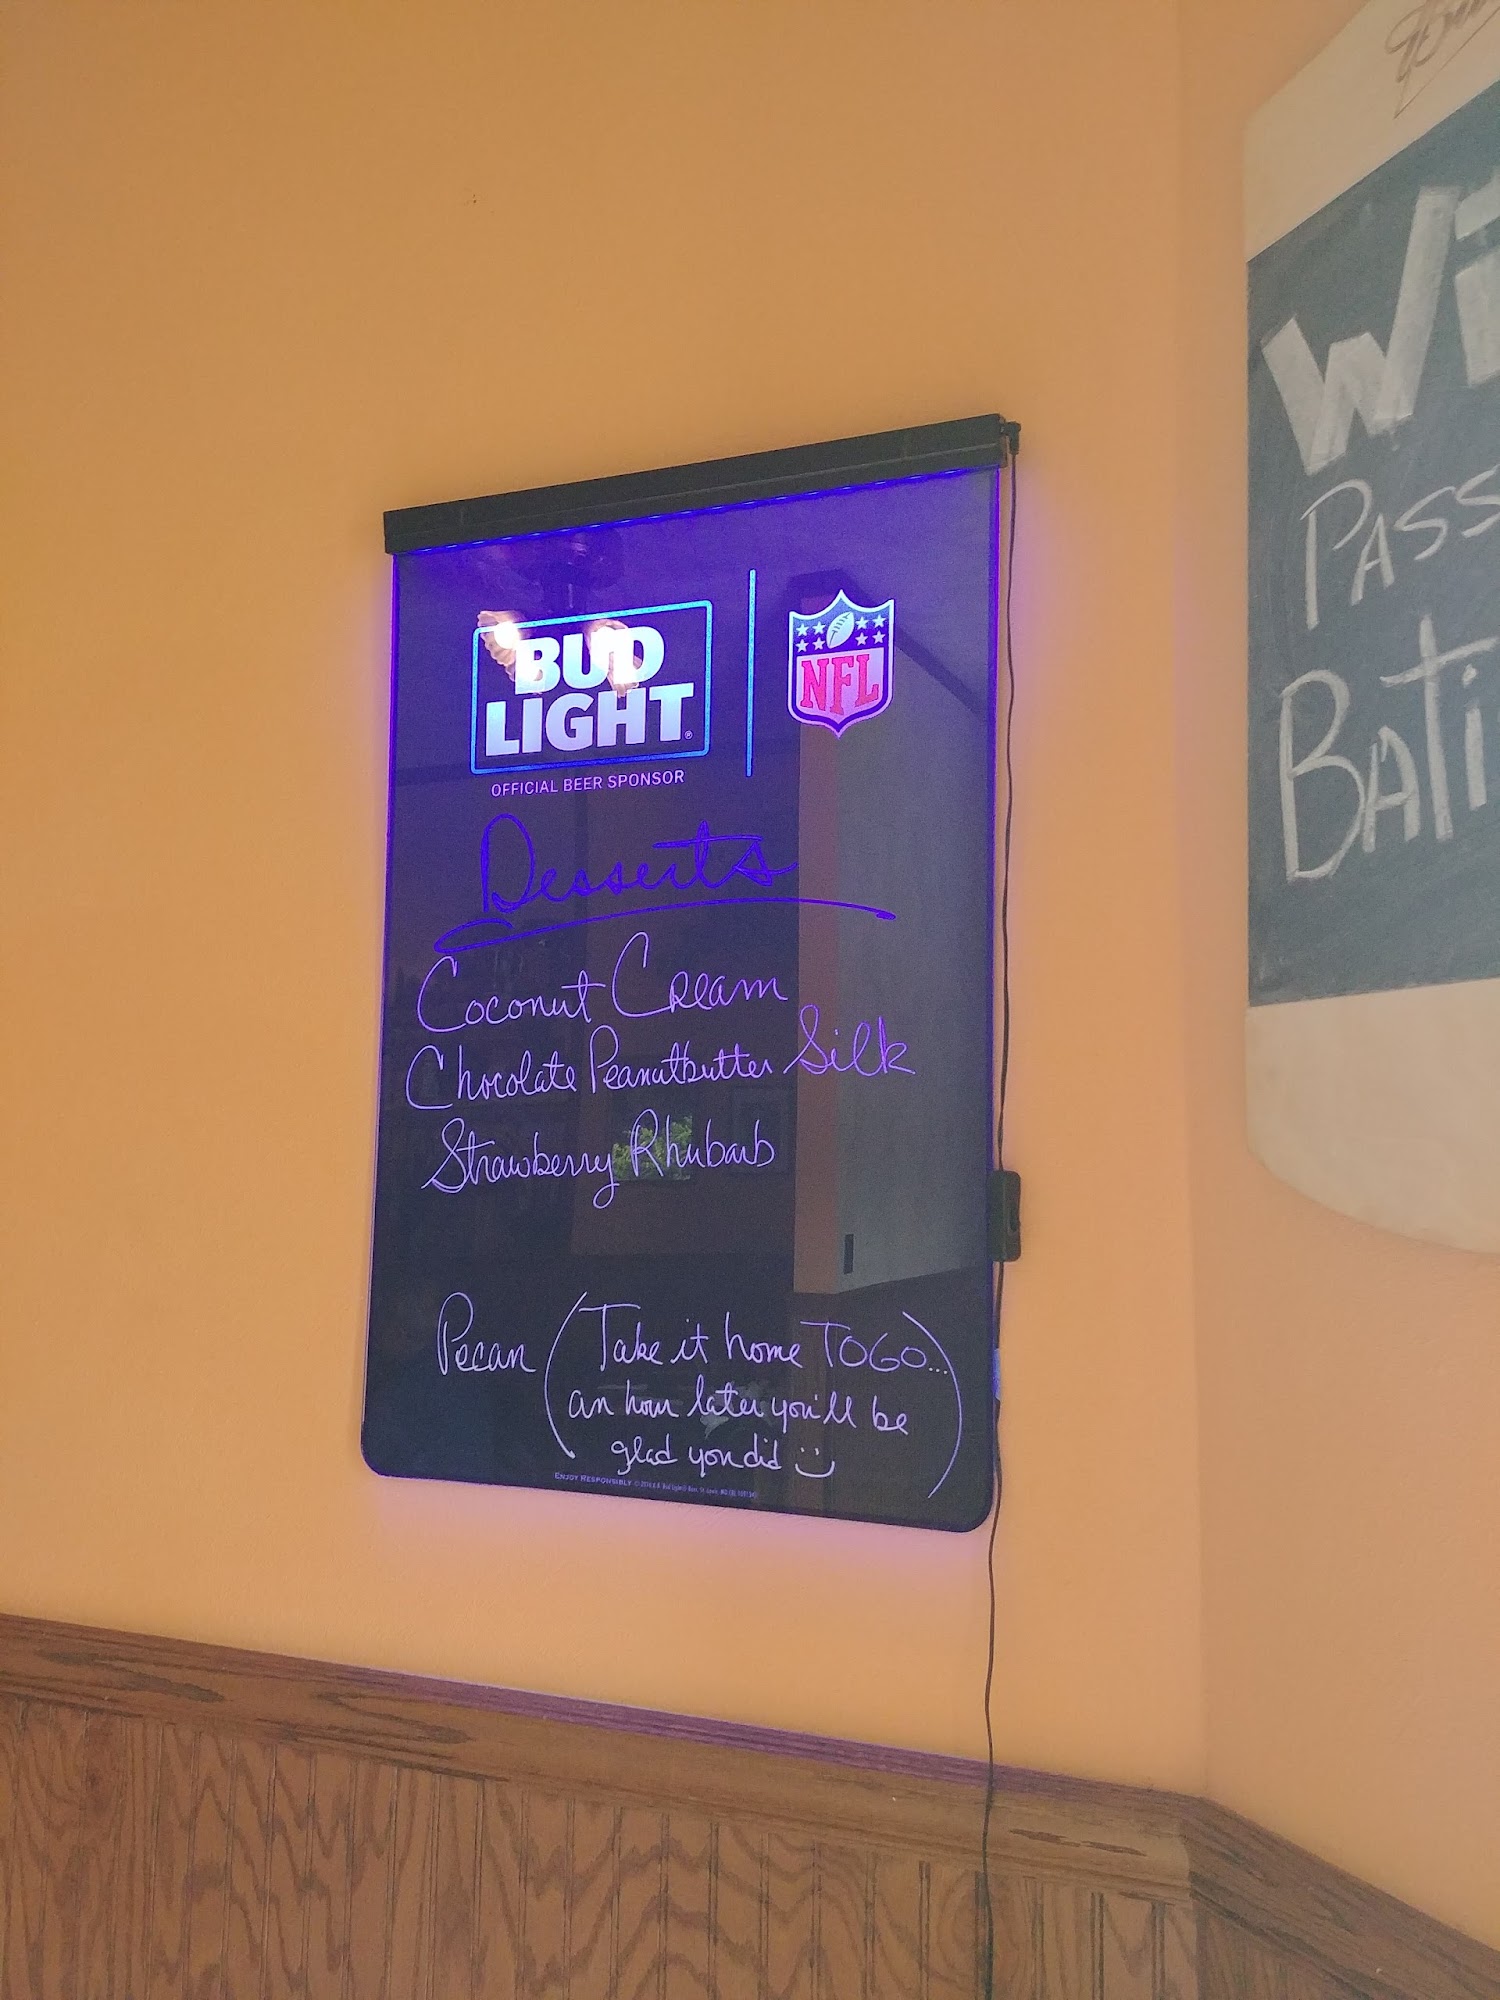 BUD
LIGHT
OFFICIAL BEER SPONSOR
NFL
Desserts
Coconut Cream
Chocolate Peanutbutter Silk
Strawberry Rhubarb
Pecan (Take it home TOGO...
an hour later you'll be
glad you did :)
ENJOY RESPONSIBLY
Wi
PASS
BATi